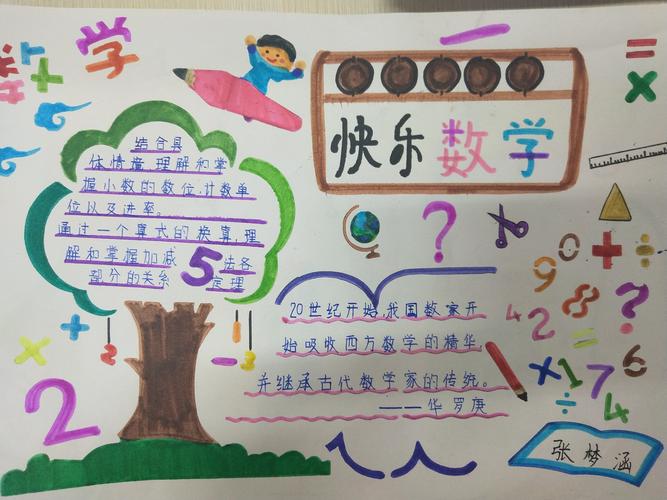 数学
快乐数学
结合具
体情境,理解和掌
握小数的数位,计数单
位以及进率。
通过一个算式的换算,理
解和掌握加减5法各
部分的关系 定理
20世纪开始,我国数家开
始吸收西方数学的精华,
并继承古代数学家的传统。
——华罗庚
= ×
?
9 0 + ÷
4 2 8 ?
× 1 7 6
÷ 4
× + 2 - 3
2
张梦涵